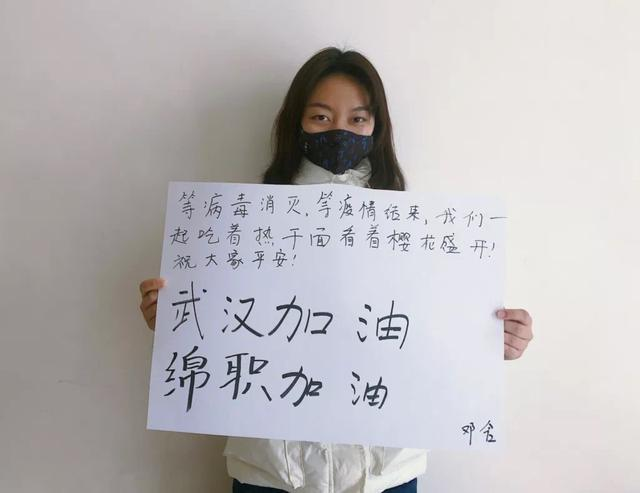 等病毒消灭,等疫情结束,我们一
起吃着热干面看着樱花盛开!
祝大家平安!
武汉加油
绵职加油
邓舍